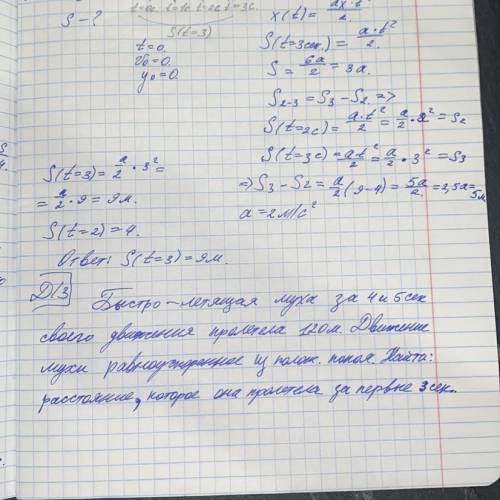 S - ?
t=0c t=1c t=2c t=3c.
S(t=3)
t=0.
v₀=0.
y₀=0.
x(t)= ax·t²/2.
S(t=3сек.) = a·t²/2.
S = 6a/2 = 3a.
S₂₋₃ = S₃ - S₂ =>
S(t=2c) = a·t²/2 = a/2 · 2² = S₂
S(t=3c) = at²/2 = a/2 · 3² = S₃
=> S₃ - S₂ = a/2 (9-4) = 5a/2 = 2,5a = 5м
a = 2м/c²
S(t=3) = a/2 · 3² =
= a/2 · 9 = 9м.
S(t=2) = 4.
Ответ: S(t=3) = 9м.
Д/З Быстро-летящая муха за 4 и 5 сек
своего движения пролетела 120м. Движение
мухи равноускоренное из полож. покоя. Найти:
расстояние, которое она пролетела за первые 3 сек.